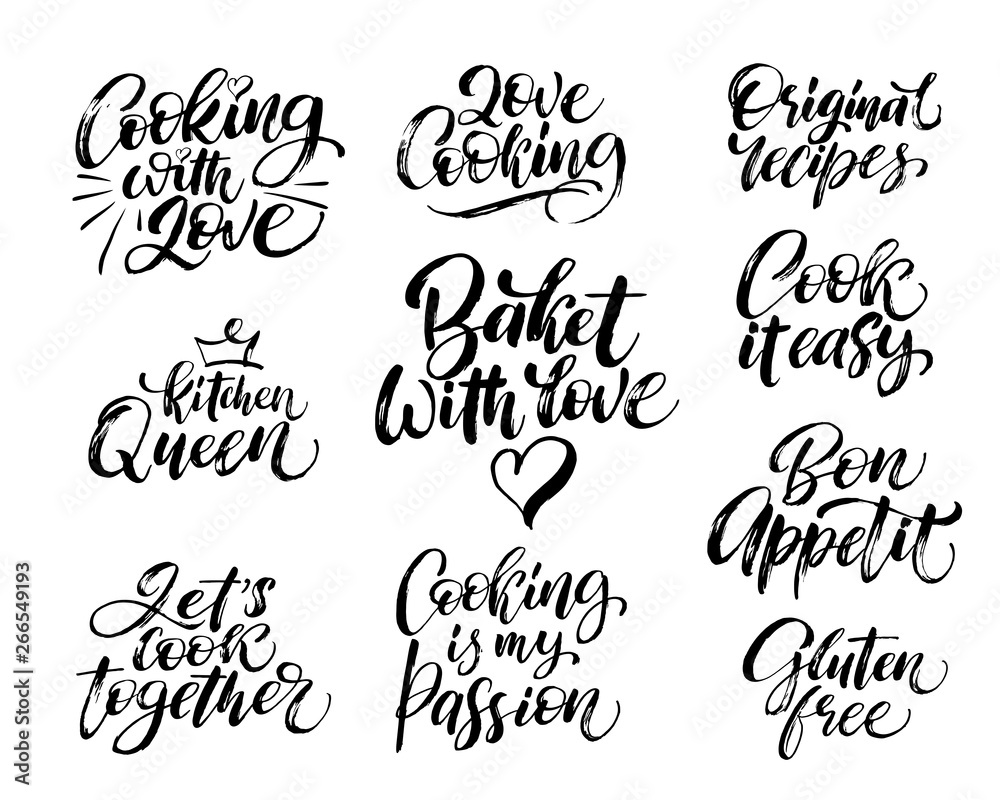 Cooking
with
Love
Love
Cooking
Original
recipes
Baket
With love
Cook
it easy
kitchen
Queen
Bon
Appetit
Let's
cook
together
Cooking
is my
Passion
Gluten
free
Adobe Stock | #266549193